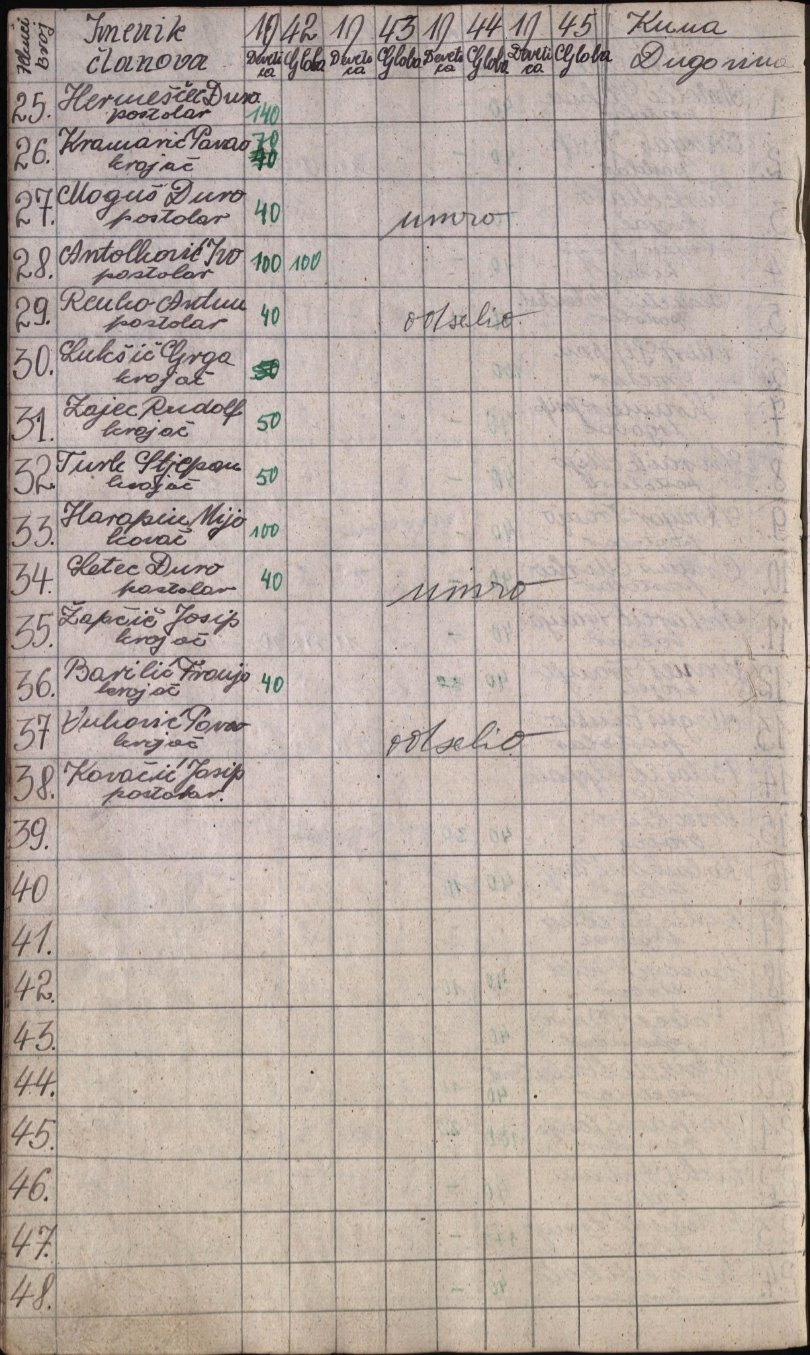 Broj
Imenik 19 42 19 43 19 44 19 45 Kuma
članova Globa Globa Globa Globa Dugovine
25. Duro
postolar 140
26. Kramarić Pavao 70
krojač 40
27. Moguš Đuro
postolar 40 umro
28. Antolković Ivo 100 100
postolar
29. Antun
postolar 40 odselio
30. Lukšić Grga
krojač 50
31. Zajec Rudolf
krojač 50
32. Turk Stjepan
krojač 50
33. Harapin Mijo
kovač 100
34. Letec Đuro
postolar 40 umro
35. Žapčić Josip
krojač
36. Barilić Franjo
krojač 40
37 Vuković Pavao
krojač odselio
38. Kovačić Josip
postolar.
39.
40
41.
42.
43.
44.
45.
46.
47.
48.